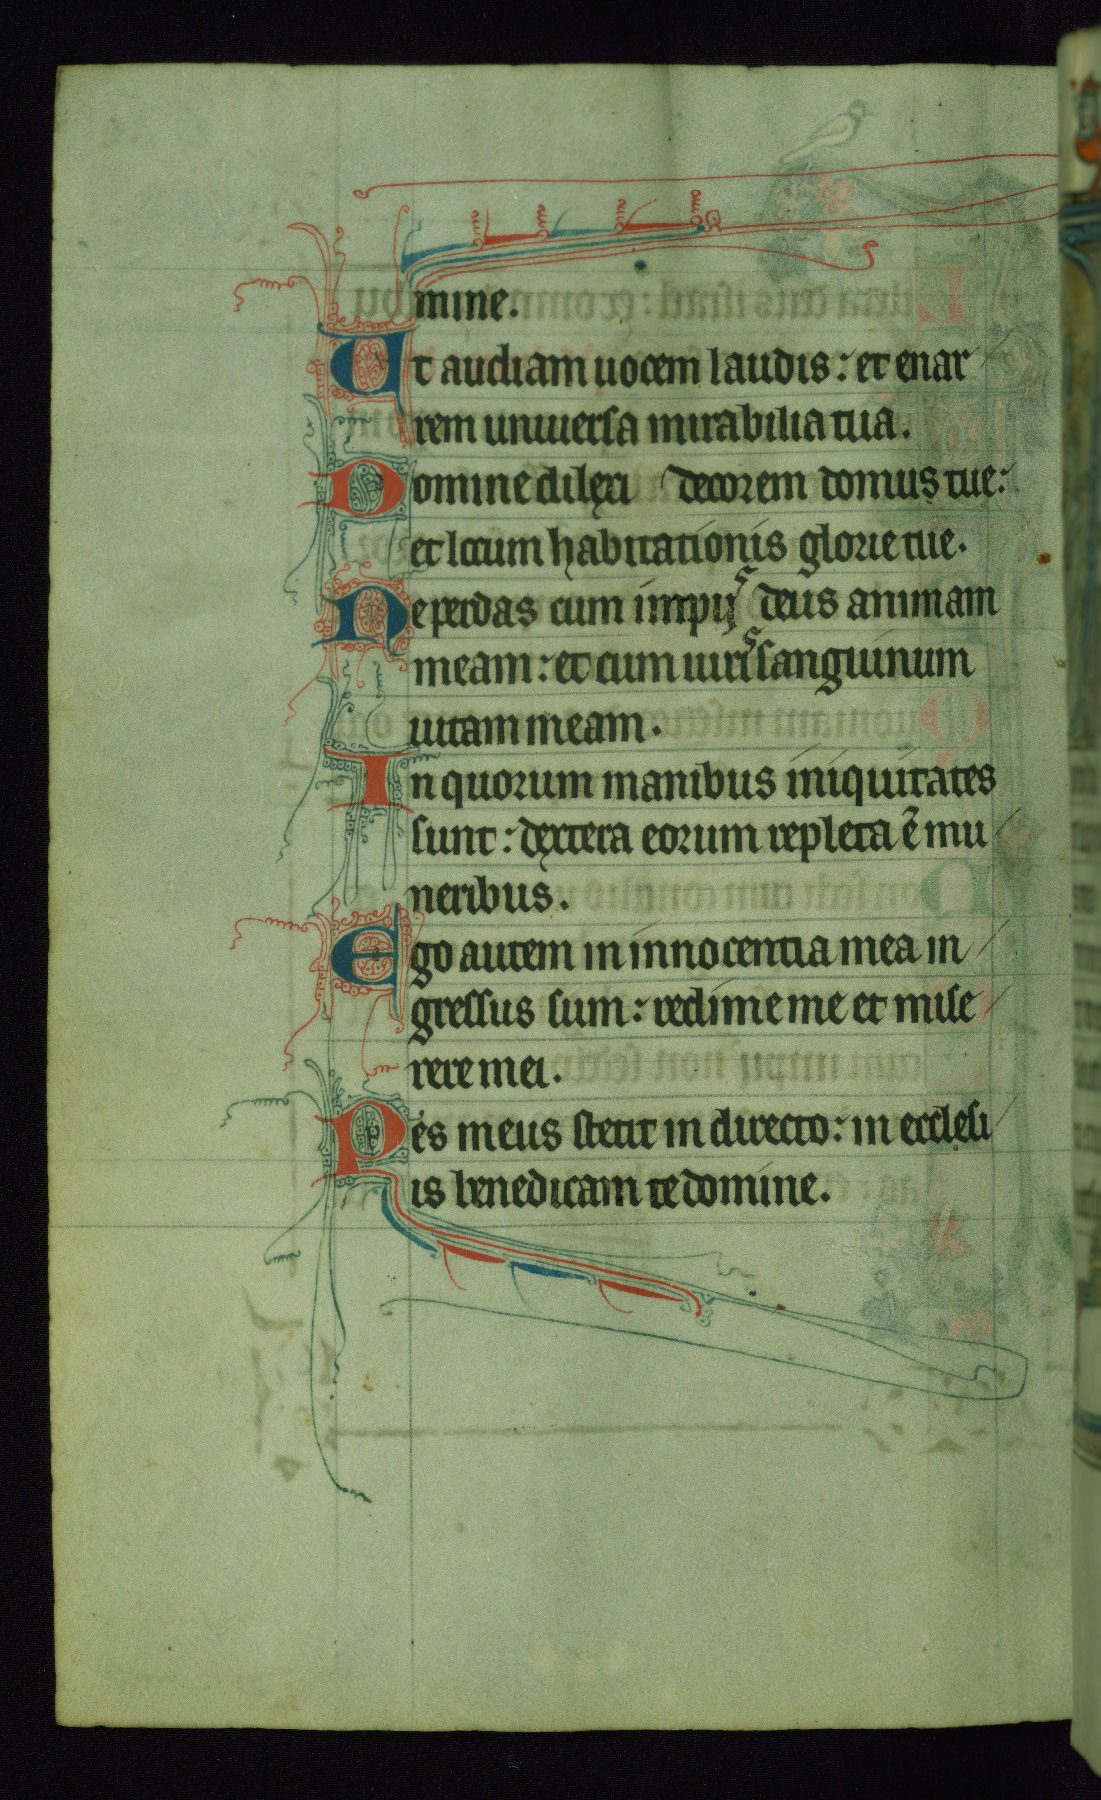 mine.
Ut audiam uocem laudis: et enar
rem uniuersa mirabilia tua.
Domine dilexi decorem domus tue:
et locum habitationis glorie tue.
Ne perdas cum impijs deus animam
meam: et cum uiris sanguinum
uitam meam.
In quorum manibus iniquitates
sunt: dextera eorum repleta ē mu
neribus.
Ego autem in innocentia mea in
gressus sum: redime me et mise
rere mei.
Pes meus stetit in directo: in ecclesi
is benedicam te domine.